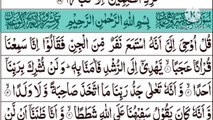 بِسْمِ اللهِ الرَّحْمٰنِ الرَّحِيْمِ
قُلْ اُوْحِيَ اِلَيَّ اَنَّهُ اسْتَمَعَ نَفَرٌ مِّنَ الْجِنِّ فَقَالُوْٓا اِنَّا سَمِعْنَا
قُرْاٰنًا عَجَبًا ۙ يَّهْدِيْٓ اِلَى الرُّشْدِ فَاٰمَنَّا بِهٖ ؕ وَلَنْ نُّشْرِكَ بِرَبِّنَآ
اَحَدًا ۙ وَّاَنَّهٗ تَعٰلٰى جَدُّ رَبِّنَا مَا اتَّخَذَ صَاحِبَةً وَّلَا وَلَدًا ۙ
وَّاَنَّهٗ كَانَ يَقُوْلُ سَفِيْهُنَا عَلَى اللهِ شَطَطًا ۙ وَّاَنَّا ظَنَنَّآ اَنْ